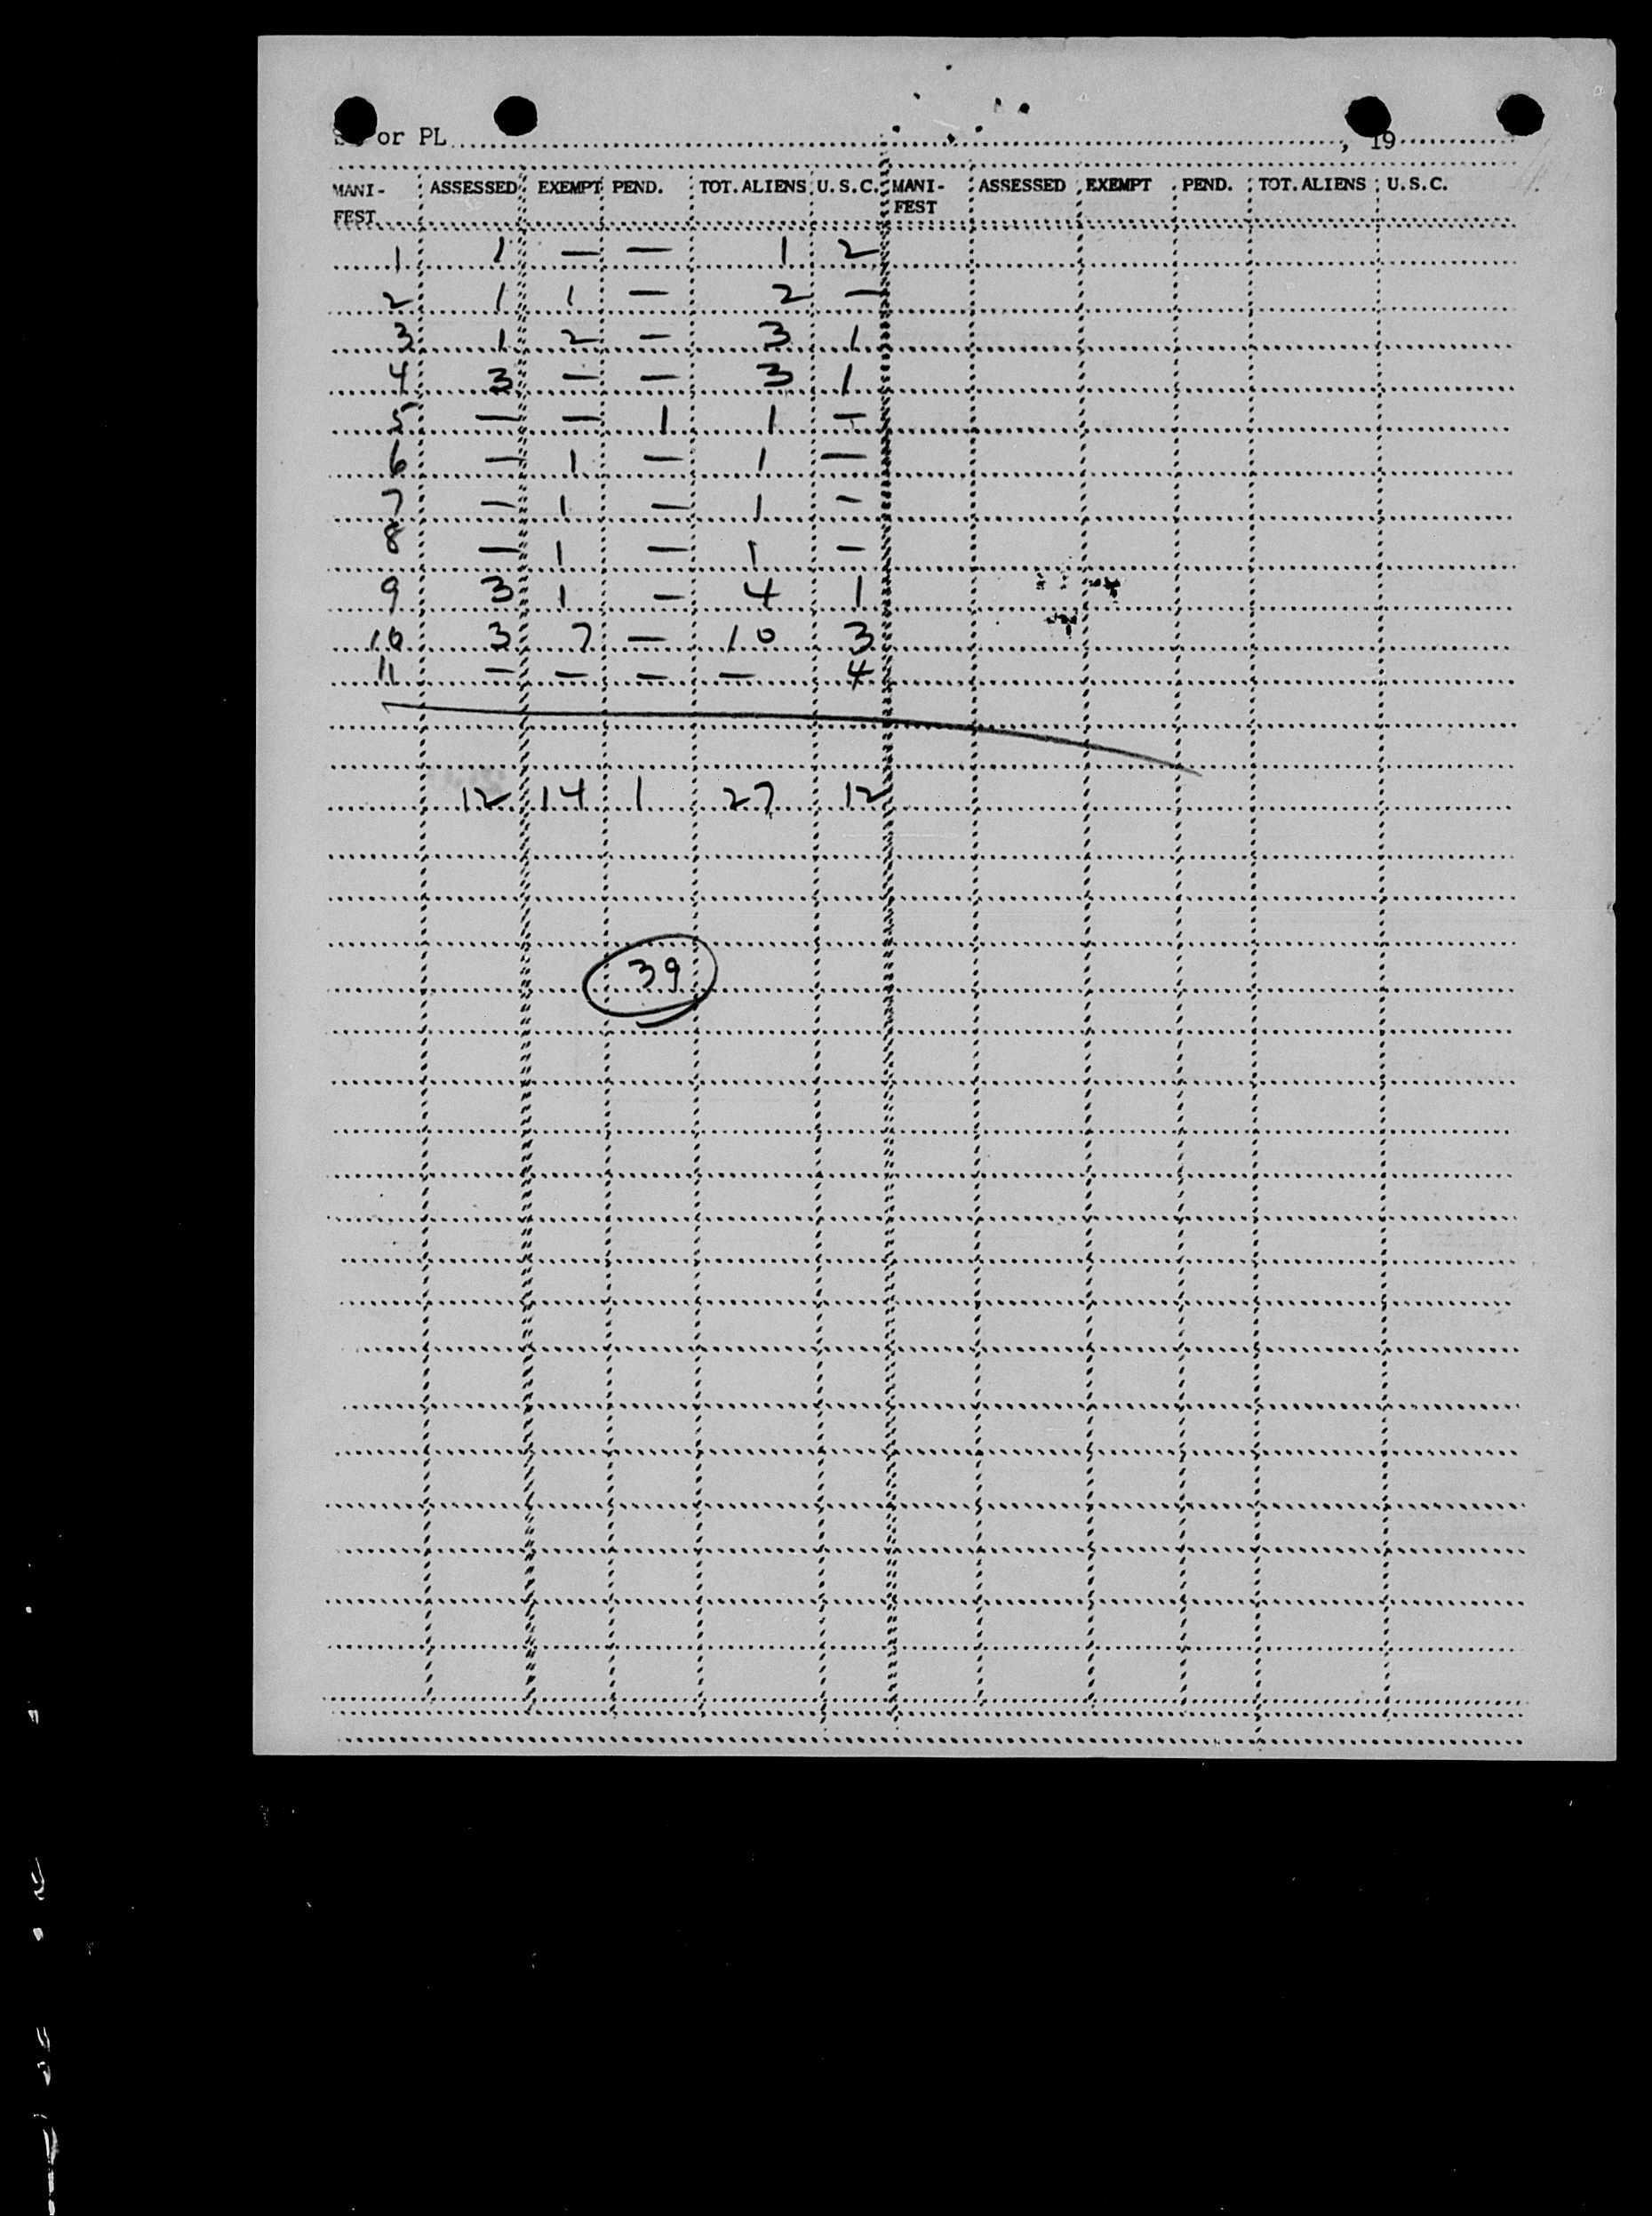 or PL , 19
MANI-FEST ASSESSED EXEMPT PEND. TOT. ALIENS U.S.C. MANI-FEST ASSESSED EXEMPT PEND. TOT. ALIENS U.S.C.
1 1 — — 1 2
2 1 1 — 2 —
3 1 2 — 3 1
4 3 — — 3 1
5 — — 1 1 —
6 — 1 — 1 —
7 — 1 — 1 —
8 — 1 — 1 —
9 3 1 — 4 1
10 3 7 — 10 3
11 — — — — 4
12 14 1 27 12
39